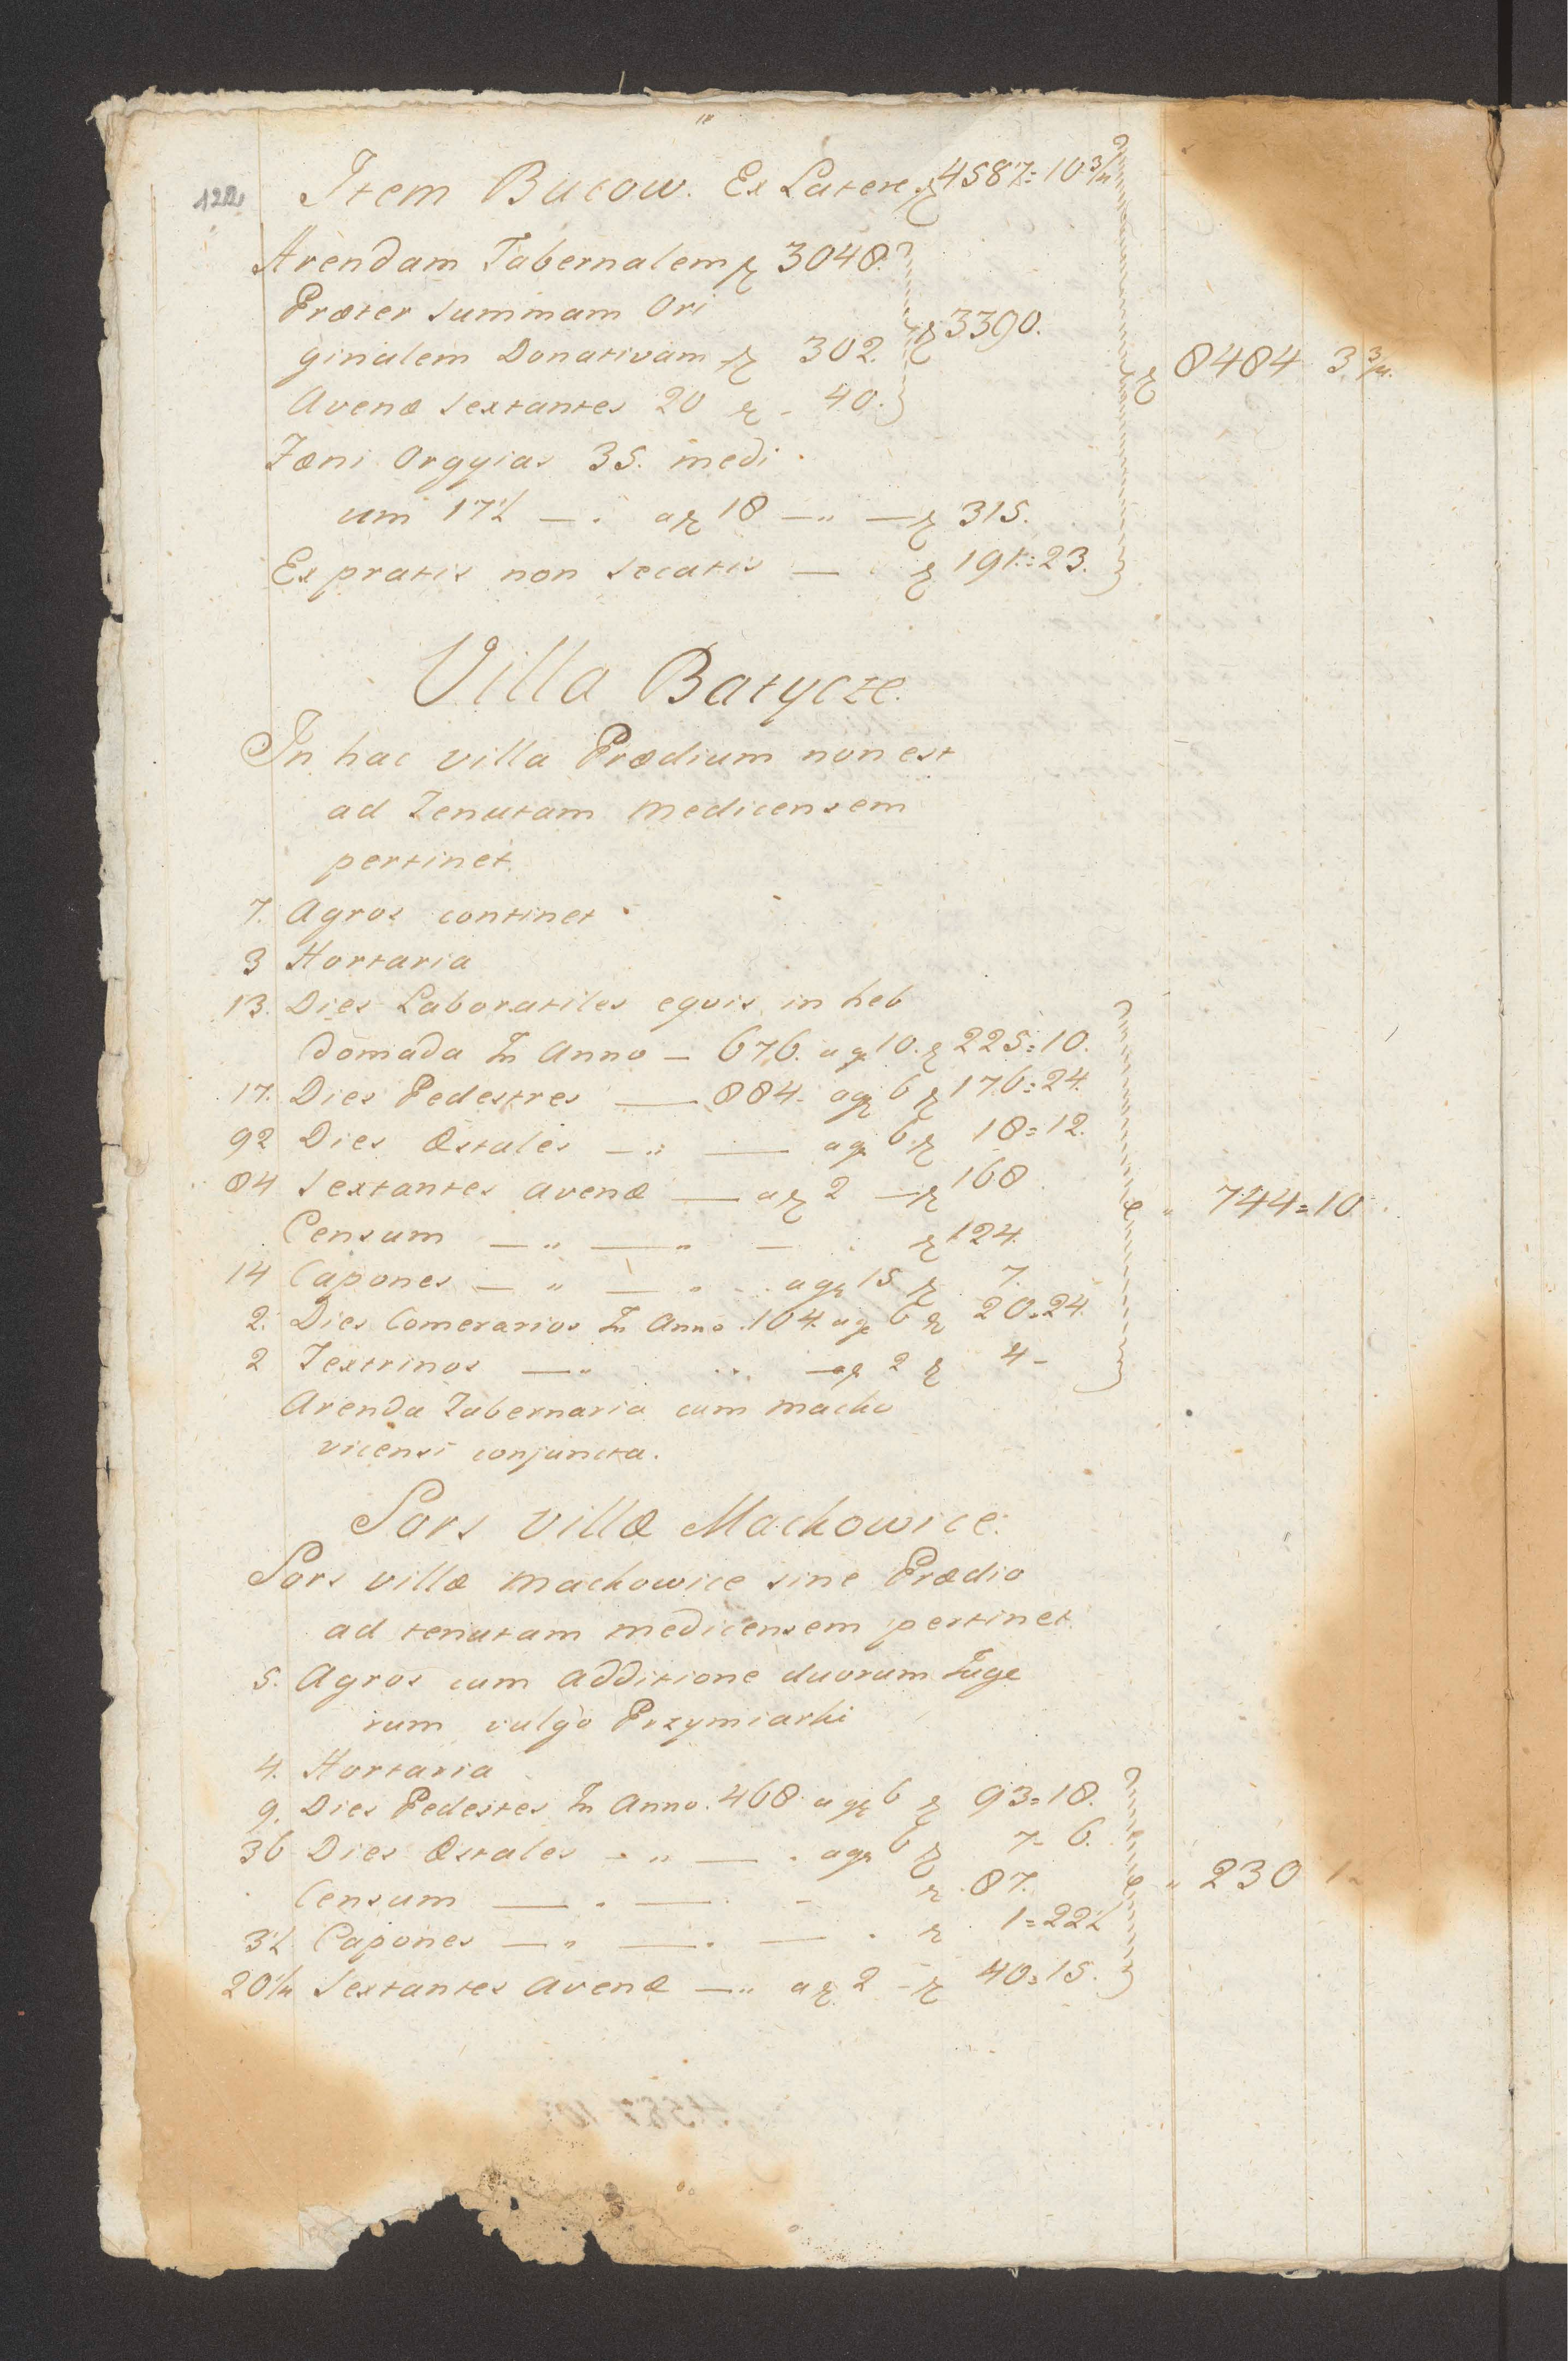 122
Item Bucow. Ex Latere f 4587=10 3/4
Arendam Tabernalem f 3048.
Præter summam Ori
ginalem Donativam f 302. f 3390.
f 8484 3 3/4.
Avenæ sextantes 20 f - 40.
Fæni Orgyias 35. medi
um 17½ — . a f 18 — " — f 315.
Ex pratis non secatis — f 191=23.
Villa Batycze.
In hac villa Prædium non est
ad Tenutam Medicensem
pertinet.
7. Agros continet
3 Hortaria
13. Dies Laboratiles equis in heb
domada In Anno — 676. a g 10. f 225=10.
17. Dies Pedestres — 884. a g 6 f 176=24.
92 Dies Æstales — " — a g 6 f 18=12.
84 Sextantes avenæ — a f 2 — f 168
" 744=10
Censum — " — " — f 124.
14 Capones — " — " a g 15 f 7.
2. Dies Comerarios In Anno 104. a g 6 f 20=24.
2 Textrinos — " a f 2 f 4 -
Arenda Tabernaria cum Macho
vicensi conjuncta.
Sors Villæ Machowice.
Sors villæ Machowice sine Prædio
ad tenutam Medicensem pertinet.
5. Agros cum additione duorum Juge
rum vulgo Przymiarki
4. Hortaria
9. Dies Pedestes In Anno. 468 a g 6 f 93=18.
36 Dies Æstales - " — . a g 6 f 7- 6.
Censum — . — - f 87.
" 230 1 -
3½ Capones — " — . — . f 1=22½
20¼ Sextantes Avenæ — " a f 2 - f 40=15.